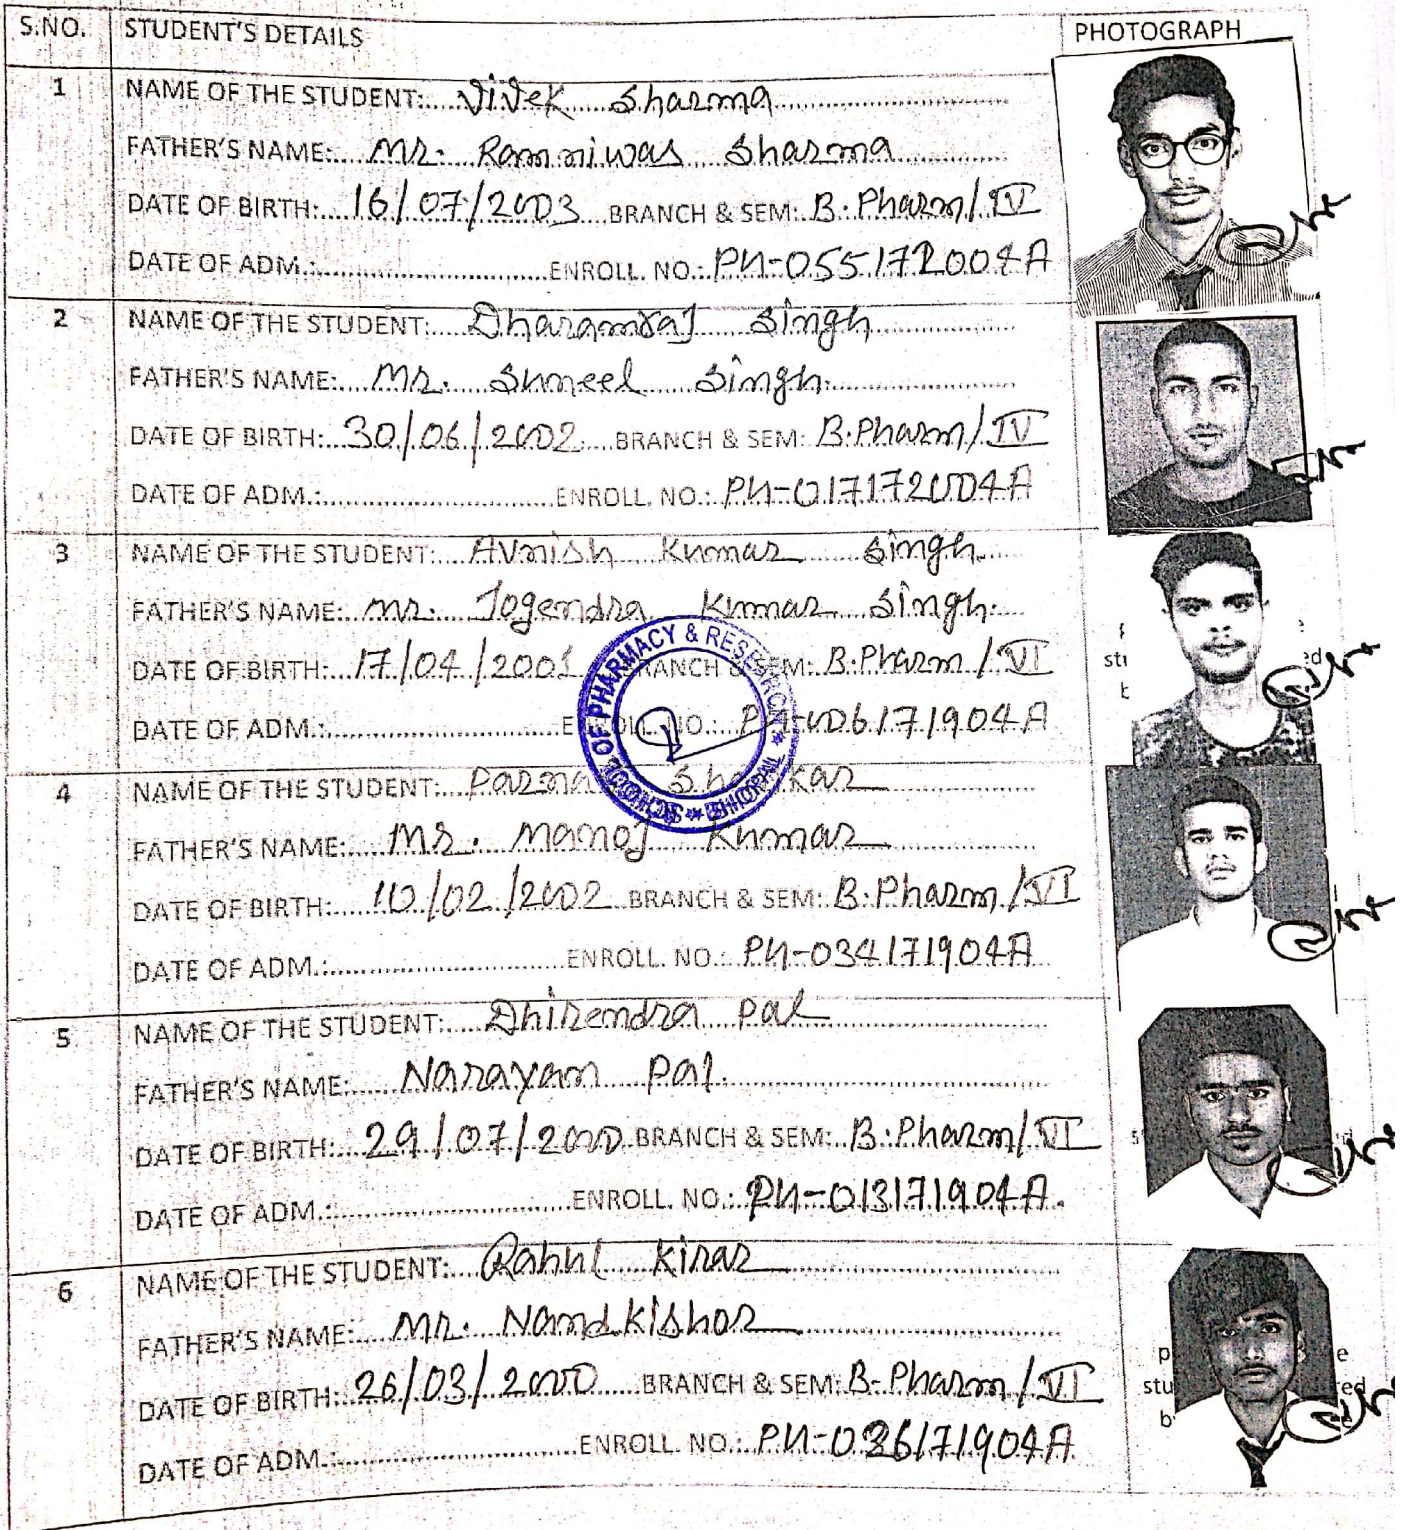 S.NO. STUDENT'S DETAILS PHOTOGRAPH
1 NAME OF THE STUDENT: Vivek Sharma
FATHER'S NAME: Mr. Ramniwas Sharma
DATE OF BIRTH: 16/07/2003 BRANCH & SEM: B.Pharm/IV
DATE OF ADM.: ENROLL. NO.: PY-055172004A
2 NAME OF THE STUDENT: Dharamraj Singh
FATHER'S NAME: Mr. Suneel Singh
DATE OF BIRTH: 30/06/2002 BRANCH & SEM: B.Pharm/IV
DATE OF ADM.: ENROLL. NO.: PY-017172004A
3 NAME OF THE STUDENT: Avnish Kumar Singh
FATHER'S NAME: Mr. Jogendra Kumar Singh
DATE OF BIRTH: 17/04/2001 BRANCH & SEM: B.Pharm/VI
DATE OF ADM.: ENROLL. NO.: PY-006171904A
SCHOOL OF PHARMACY & RESEARCH * BHOPAL *
4 NAME OF THE STUDENT:
FATHER'S NAME: Mr. Manoj Kumar
DATE OF BIRTH: 10/02/2002 BRANCH & SEM: B.Pharm/VI
DATE OF ADM.: ENROLL. NO.: PY-034171904A
5 NAME OF THE STUDENT: Dhirendra Pal
FATHER'S NAME: Narayan Pal
DATE OF BIRTH: 29/07/2000 BRANCH & SEM: B.Pharm/VI
DATE OF ADM.: ENROLL. NO.: PY-013171904A.
6 NAME OF THE STUDENT: Rahul Kirar
FATHER'S NAME: Mr. Nandkishor
DATE OF BIRTH: 26/03/2000 BRANCH & SEM: B-Pharm/VI
DATE OF ADM.: ENROLL. NO.: PY-036171904A